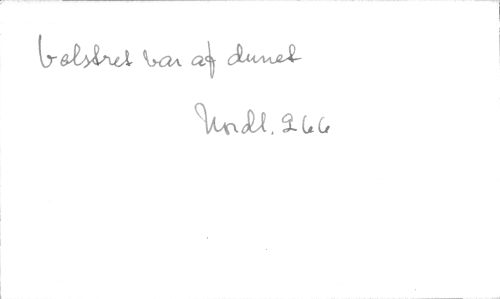 bolstret var af dunet
Nordl. 266